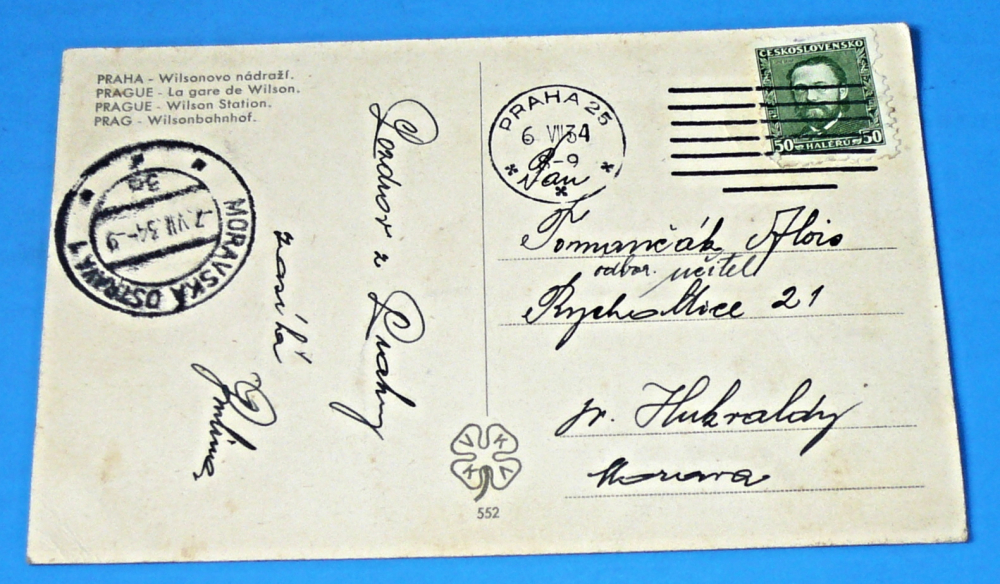 PRAHA - Wilsonovo nádraží.
PRAGUE - La gare de Wilson.
PRAGUE - Wilson Station.
PRAG - Wilsonbahnhof.
MORAVSKÁ OSTRAVA 1
-7.VII.34-9
3a
Pozdrav z Prahy
zasílá
PRAHA 25
6 VII 34
8-9
ČESKOSLOVENSKO
50 HALÉŘŮ 50
Pan
Tomančák Alois
odbor. učitel
Rychaltice 21
p. Hukvaldy
Morava
V K K V
552